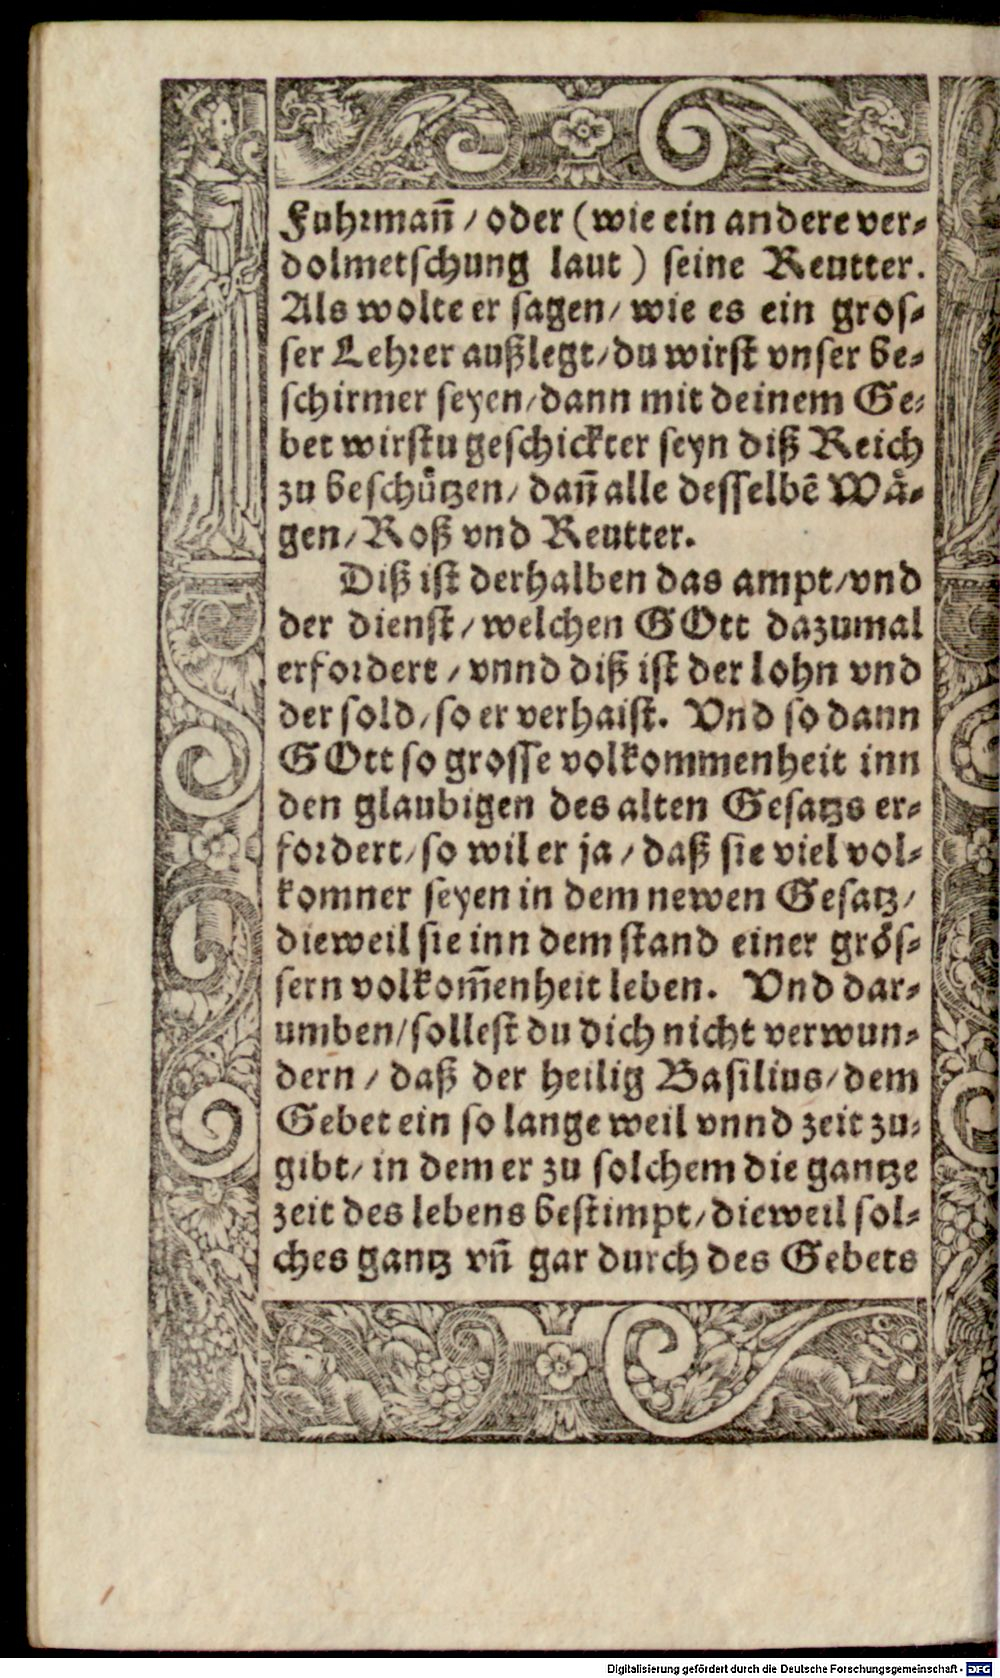 Fuhrmañ / oder (wie ein andere ver⸗
dolmetschung laut) seine Reutter.
Als wolte er sagen / wie es ein gros⸗
ser Lehrer außlegt / du wirst vnser be⸗
schirmer seyen / dann mit deinem Ge⸗
bet wirstu geschickter seyn diß Reich
zu beschuͤtzen / dañ alle desselbẽ Waͤ⸗
gen / Roß vnd Reutter.
Diß ist derhalben das ampt / vnd
der dienst / welchen GOtt dazumal
erfordert / vnnd diß ist der lohn vnd
der sold / so er verhaist. Vnd so dann
GOtt so grosse volkommenheit inn
den glaubigen des alten Gesatzs er⸗
fordert / so wil er ja / daß sie viel vol⸗
komner seyen in dem newen Gesatz /
dieweil sie inn dem stand einer groͤs⸗
sern volkom̃enheit leben. Vnd dar⸗
umben / sollest du dich nicht verwun⸗
dern / daß der heilig Basilius / dem
Gebet ein so lange weil vnnd zeit zu⸗
gibt / in dem er zu solchem die gantze
zeit des lebens bestimpt / dieweil sol⸗
ches gantz vñ gar durch des Gebets
Digitalisierung gefördert durch die Deutsche Forschungsgemeinschaft - DFG